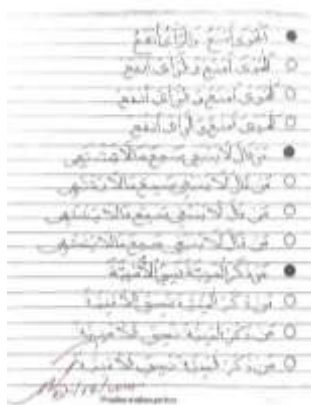 ● اَلْهَوَى أَمْتَعُ وَالرَّأْيُ أَنْفَعُ
○ الهوى امتع و الرأي أنفع
○ الهوى امتع و الرأي أنفع
○ الهوى امتع و الرأي أنفع
● مَنْ قَالَ لَا يَنْبَغِي سَمِعَ مَا لَا يَشْتَهِي
○ من قال لا ينبغي سمع ما لا يشتهي
○ من قال لا ينبغي سمع ما لا يشتهي
○ من قال لا ينبغي سمع ما لا يشتهي
● مَنْ ذَكَرَ الْمَنِيَّةَ نَسِيَ الْأُمْنِيَّةَ
○ من ذكر المنية نسي الأمنية
○ من ذكر المنية نسي الأمنية
○ من ذكر المنية نسي الأمنية